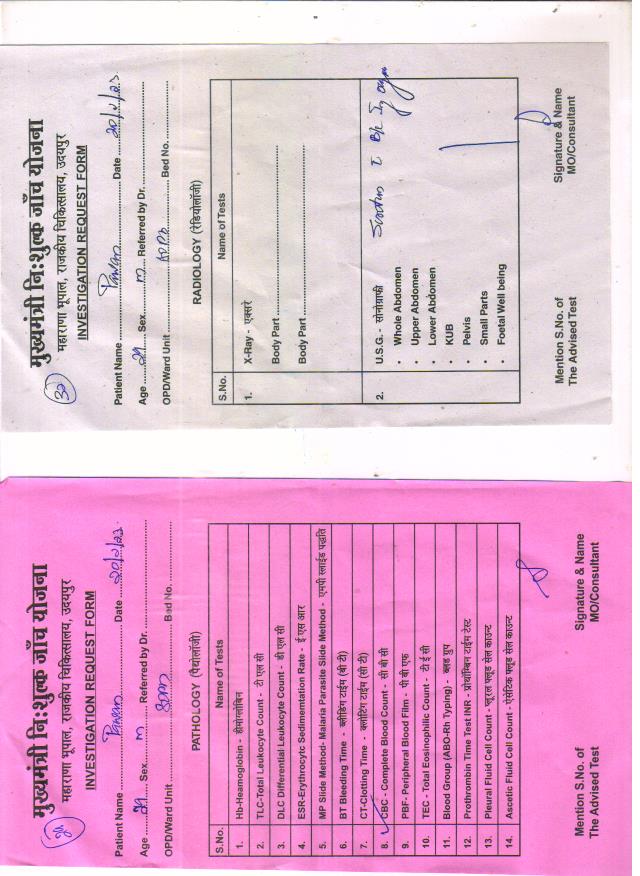 मुख्यमंत्री निःशुल्क जाँच योजना
महाराणा भूपाल, राजकीय चिकित्सालय, उदयपुर
INVESTIGATION REQUEST FORM
Patient Name Pawan Date
Age Sex M Referred by Dr.
OPD/Ward Unit Bed No.
RADIOLOGY (रेडियोलॉजी)
S.No. Name of Tests
1. X-Ray - एक्सरे
Body Part
Body Part
2. U.S.G. - सोनोग्राफी
• Whole Abdomen
• Upper Abdomen
• Lower Abdomen
• KUB
• Pelvis
• Small Parts
• Foetal Well being
Mention S.No. of Signature & Name
The Advised Test MO/Consultant
मुख्यमंत्री निःशुल्क जाँच योजना
महाराणा भूपाल, राजकीय चिकित्सालय, उदयपुर
INVESTIGATION REQUEST FORM
Patient Name Pawan Date
Age Sex M Referred by Dr.
OPD/Ward Unit Bed No.
PATHOLOGY (पैथोलॉजी)
S.No. Name of Tests
1. Hb-Heamoglobin - हीमोग्लोबिन
2. TLC-Total Leukocyte Count - टी एल सी
3. DLC Differential Leukocyte Count - डी एल सी
4. ESR-Erythrocytc Sedimemtation Rate - ई एस आर
5. MP Slide Method- Malaria Parasite Slide Method - एमपी स्लाईड पद्धति
6. BT Bleeding Time - ब्लीडिंग टाईम (बी टी)
7. CT-Clotting Time - क्लोटिंग टाईम (सी टी)
8. CBC - Complete Blood Count - सी बी सी
9. PBF- Peripheral Blood Film - पी बी एफ
10. TEC - Total Eosinophilic Count - टी ई सी
11. Blood Group (ABO-Rh Typing) - ब्लड ग्रुप
12. Prothrombin Time Test INR - प्रोथ्रॉम्बिन टाईम टेस्ट
13. Pleural Fluid Cell Count - प्लूरल फ्लूड सेल काउन्ट
14. Ascetic Fluid Cell Count - ऐसेटिक फ्लूड सेल काउन्ट
Mention S.No. of Signature & Name
The Advised Test MO/Consultant